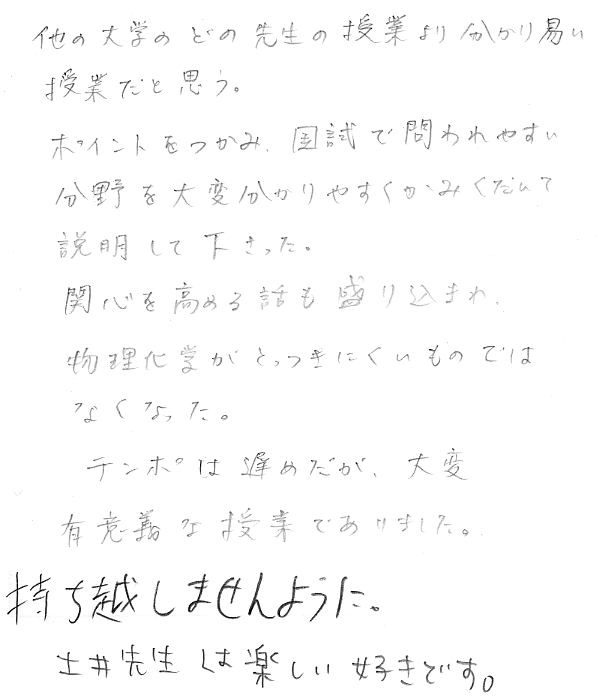 他の大学のどの先生の授業より分かり易い
授業だと思う。
ポイントをつかみ、国試で問われやすい
分野を大変分かりやすくかみくだいて
説明して下さった。
関心を高める話も盛り込まれ、
物理化学がとっつきにくいものでは
なくなった。
テンポは遅めだが、大変
有意義な授業でありました。
持ち越しませんように。
土井先生は楽しい好きです。